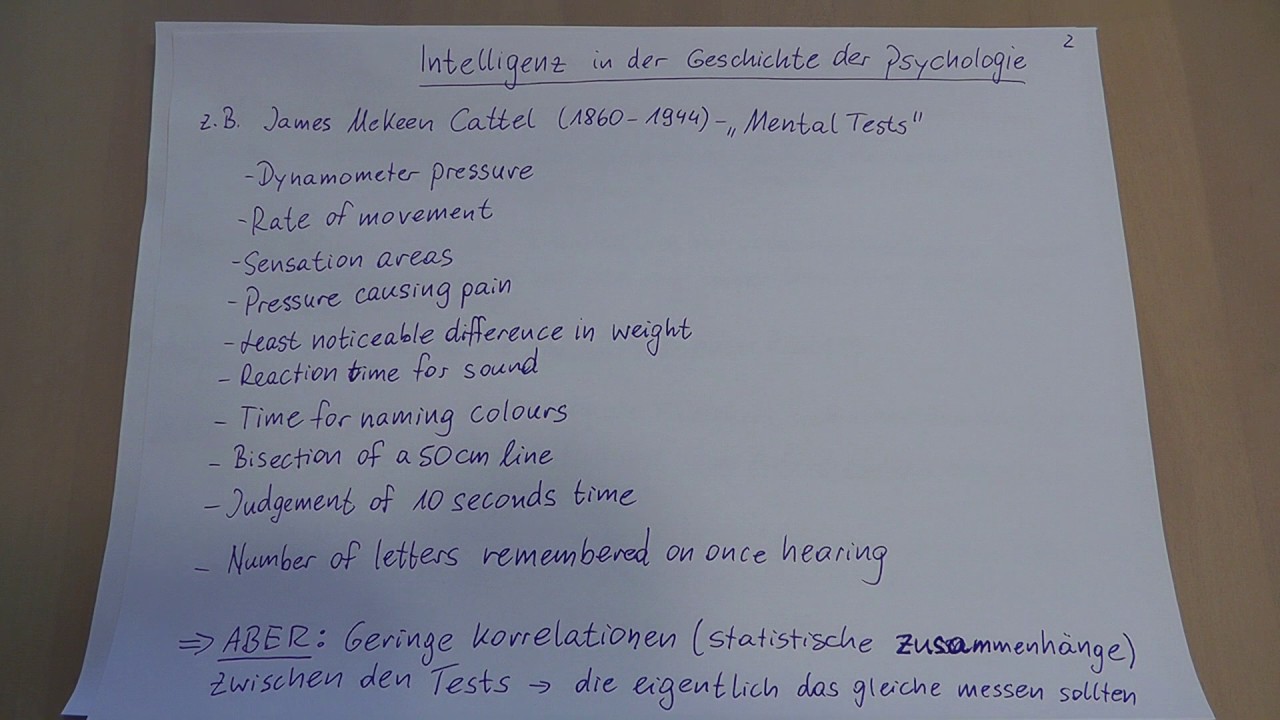 2
Intelligenz in der Geschichte der Psychologie
z.B. James McKeen Cattel (1860-1944)-„Mental Tests"
-Dynamometer pressure
-Rate of movement
-Sensation areas
- Pressure causing pain
- Least noticeable difference in weight
- Reaction time for sound
- Time for naming colours
- Bisection of a 50cm line
- Judgement of 10 seconds time
- Number of letters remembered on once hearing
⇒ ABER: Geringe Korrelationen (statistische Zusammenhänge)
zwischen den Tests → die eigentlich das gleiche messen sollten